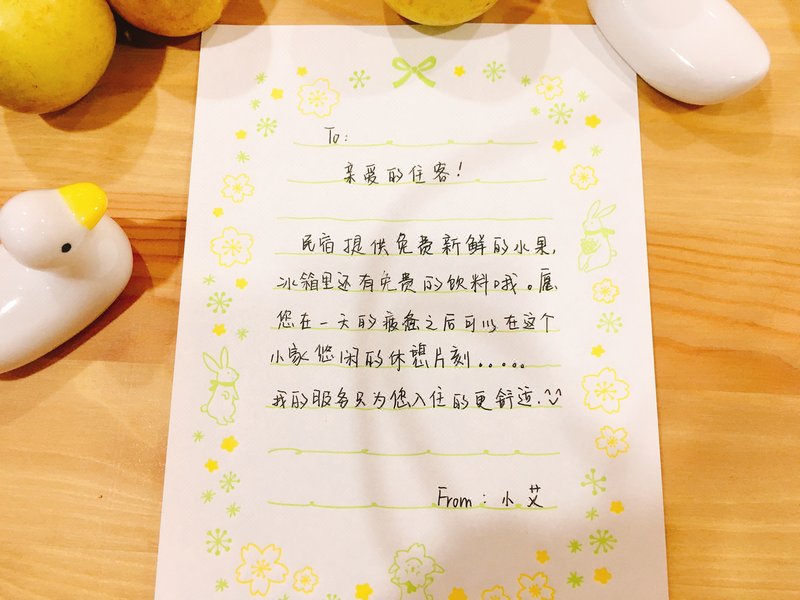 To:
亲爱的住客!
民宿提供免费新鲜的水果,
冰箱里还有免费的饮料哦。愿
您在一天的疲惫之后可以在这个
小家悠闲的休憩片刻.....
我的服务只为您入住的更舒适.^^
From: 小艾